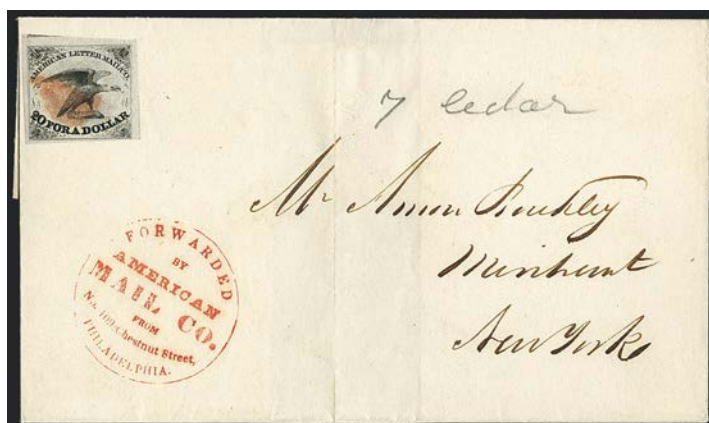 AMERICAN LETTER MAIL CO.
20 FOR A DOLLAR
7 Cedar
Mr
Merchant
New York
FORWARDED
BY
AMERICAN
MAIL CO.
FROM
No. 109 Chestnut Street,
PHILADELPHIA.